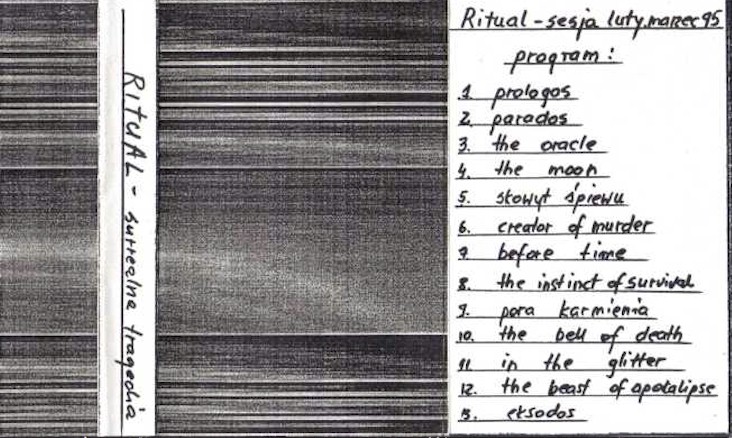 RITUAL - surrealna tragedia
Ritual - sesja luty.marzec 95
program:
1. prologos
2. parados
3. the oracle
4. the moon
5. skowyt śpiewu
6. creator of murder
7. before time
8. the instinct of survival
9. pora karmienia
10. the bell of death
11. in the glitter
12. the beast of apokalipse
13. eksodos